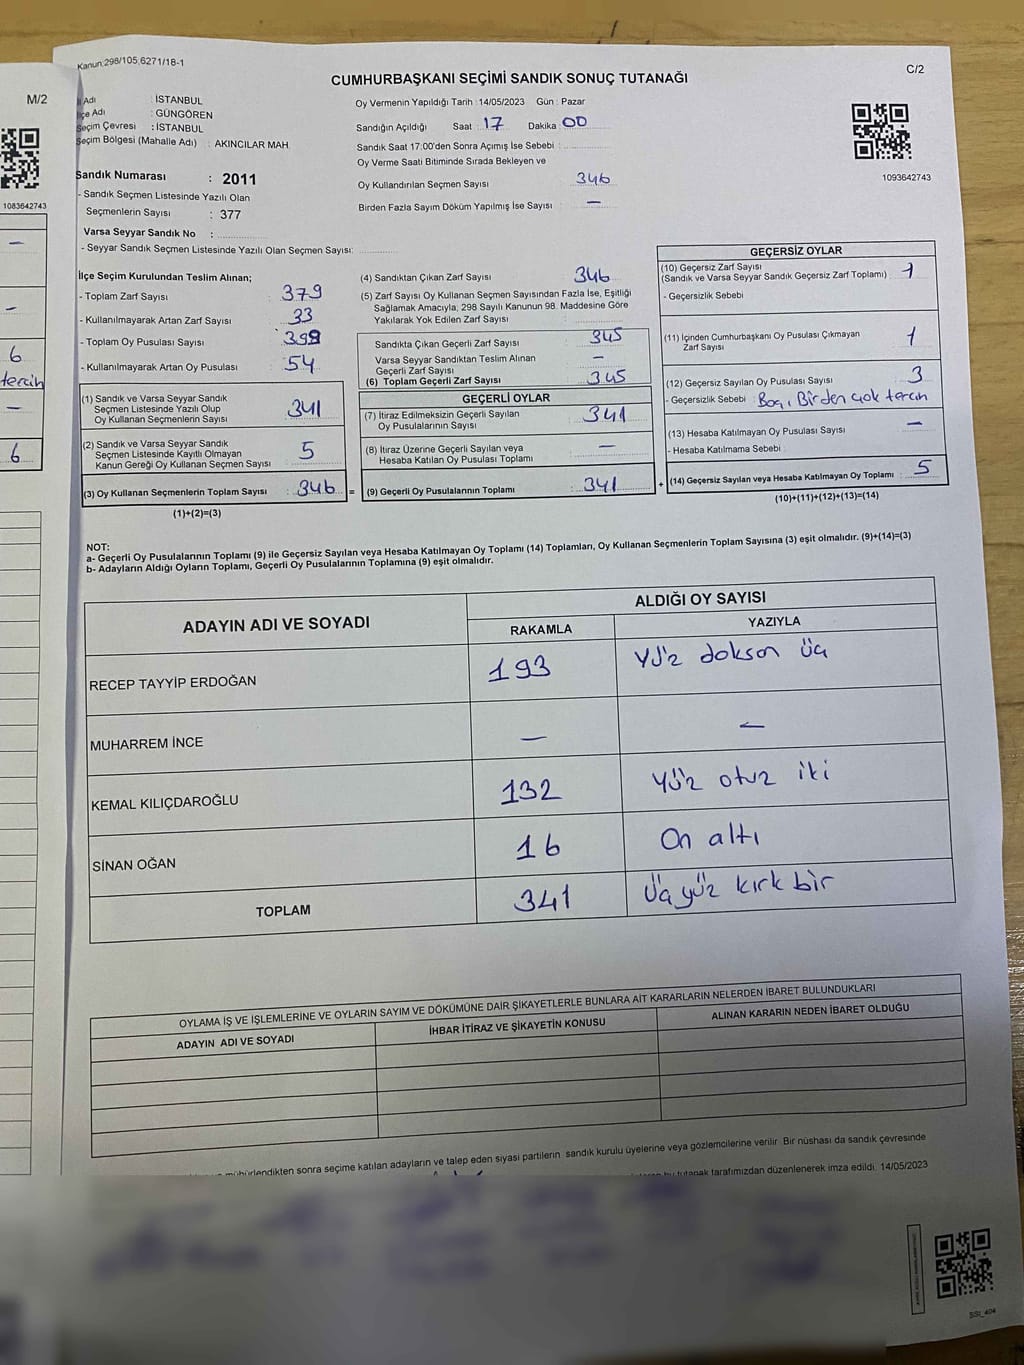 Kanun:298/105,6271/18-1
CUMHURBAŞKANI SEÇİMİ SANDIK SONUÇ TUTANAĞI
C/2
M/2
Adı : İSTANBUL
Adı : GÜNGÖREN
Seçim Çevresi : İSTANBUL
Seçim Bölgesi (Mahalle Adı) : AKINCILAR MAH.
Oy Vermenin Yapıldığı Tarih : 14/05/2023 Gün : Pazar
Sandığın Açıldığı Saat : 17 Dakika : 00
Sandık Saat 17:00'den Sonra Açımış İse Sebebi :
Oy Verme Saati Bitiminde Sırada Bekleyen ve
Oy Kullandırılan Seçmen Sayısı : 346
Birden Fazla Sayım Döküm Yapılmış İse Sayısı : —
1093642743
1083642743
Sandık Numarası : 2011
- Sandık Seçmen Listesinde Yazılı Olan
Seçmenlerin Sayısı : 377
Varsa Seyyar Sandık No :
- Seyyar Sandık Seçmen Listesinde Yazılı Olan Seçmen Sayısı:
İlçe Seçim Kurulundan Teslim Alınan;
- Toplam Zarf Sayısı : 379
- Kullanılmayarak Artan Zarf Sayısı : 33
- Toplam Oy Pusulası Sayısı : 399
- Kullanılmayarak Artan Oy Pusulası : 54
(1) Sandık ve Varsa Seyyar Sandık
Seçmen Listesinde Yazılı Olup
Oy Kullanan Seçmenlerin Sayısı : 341
(2) Sandık ve Varsa Seyyar Sandık
Seçmen Listesinde Kayıtlı Olmayan
Kanun Gereği Oy Kullanan Seçmen Sayısı : 5
(3) Oy Kullanan Seçmenlerin Toplam Sayısı : 346
(1)+(2)=(3)
(4) Sandıktan Çıkan Zarf Sayısı : 346
(5) Zarf Sayısı Oy Kullanan Seçmen Sayısından Fazla İse, Eşitliği
Sağlamak Amacıyla; 298 Sayılı Kanunun 98. Maddesine Göre
Yakılarak Yok Edilen Zarf Sayısı :
Sandıkta Çıkan Geçerli Zarf Sayısı : 345
Varsa Seyyar Sandıktan Teslim Alınan
Geçerli Zarf Sayısı : —
(6) Toplam Geçerli Zarf Sayısı : 345
GEÇERLİ OYLAR
(7) İtiraz Edilmeksizin Geçerli Sayılan
Oy Pusulalarının Sayısı : 341
(8) İtiraz Üzerine Geçerli Sayılan veya
Hesaba Katılan Oy Pusulası Toplamı : —
= (9) Geçerli Oy Pusulalarının Toplamı : 341
GEÇERSİZ OYLAR
(10) Geçersiz Zarf Sayısı
(Sandık ve Varsa Seyyar Sandık Geçersiz Zarf Toplamı) : 1
- Geçersizlik Sebebi
(11) İçinden Cumhurbaşkanı Oy Pusulası Çıkmayan
Zarf Sayısı : 1
(12) Geçersiz Sayılan Oy Pusulası Sayısı : 3
- Geçersizlik Sebebi : Boş, Birden çok tercih
(13) Hesaba Katılmayan Oy Pusulası Sayısı : —
- Hesaba Katılmama Sebebi
+ (14) Geçersiz Sayılan veya Hesaba Katılmayan Oy Toplamı : 5
(10)+(11)+(12)+(13)=(14)
6
tercih
6
NOT:
a- Geçerli Oy Pusulalarının Toplamı (9) ile Geçersiz Sayılan veya Hesaba Katılmayan Oy Toplamı (14) Toplamları, Oy Kullanan Seçmenlerin Toplam Sayısına (3) eşit olmalıdır. (9)+(14)=(3)
b- Adayların Aldığı Oyların Toplamı, Geçerli Oy Pusulalarının Toplamına (9) eşit olmalıdır.
ADAYIN ADI VE SOYADI
ALDIĞI OY SAYISI
RAKAMLA YAZIYLA
RECEP TAYYİP ERDOĞAN 193 Yüz doksan üç
MUHARREM İNCE — —
KEMAL KILIÇDAROĞLU 132 Yüz otuz iki
SİNAN OĞAN 16 On altı
TOPLAM 341 Üç yüz kırk bir
OYLAMA İŞ VE İŞLEMLERİNE VE OYLARIN SAYIM VE DÖKÜMÜNE DAİR ŞİKAYETLERLE BUNLARA AİT KARARLARIN NELERDEN İBARET BULUNDUKLARI
ADAYIN ADI VE SOYADI İHBAR İTİRAZ VE ŞİKAYETİN KONUSU ALINAN KARARIN NEDEN İBARET OLDUĞU
mühürlendikten sonra seçime katılan adayların ve talep eden siyasi partilerin sandık kurulu üyelerine veya gözlemcilerine verilir. Bir nüshası da sandık çevresinde
bu tutanak tarafımızdan düzenlenerek imza edildi. 14/05/2023
SISI_404